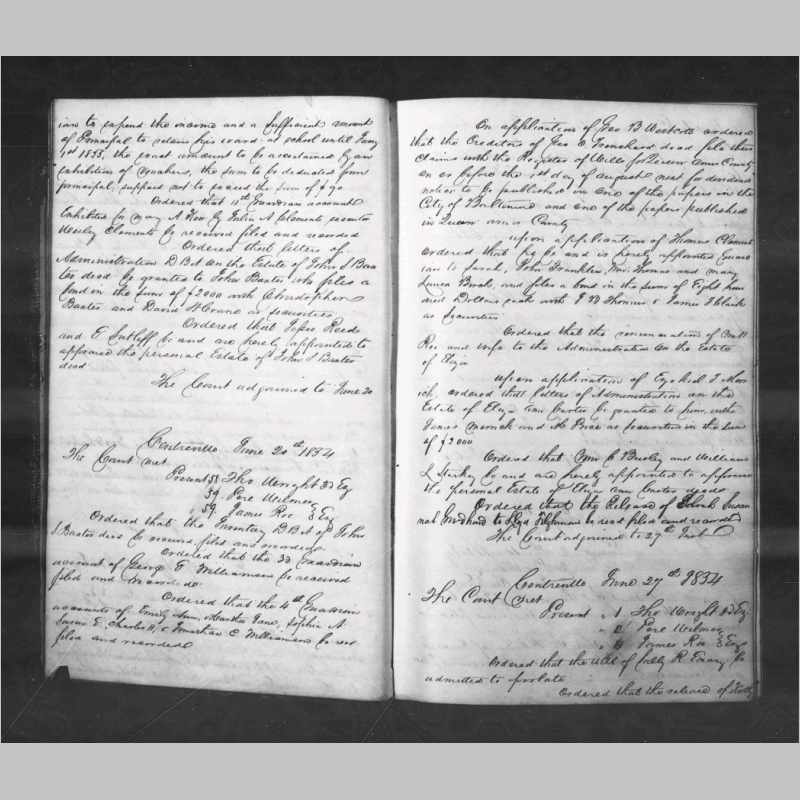 ian to expend the income and a sufficient amount
of Principal to retain his ward at school until Jany
1st 1855, the exact amount to be ascertained by an
exhibition of vouchers, the sum to be deducted from
principal, support not to exceed the sum of $90
Ordered that 11th Guardian account
Exhibited for Mary A by Julia A Clements executor
Wesley Clements be received filed and recorded
Ordered that letters of
Administration D B N on the Estate of John S Bax
ter decd be granted to John Baxter who files a
bond in the sum of $2000 with Christopher
Baxter and David H Crane as securities
Ordered that Jesse Reed
and E Sutliff be and are hereby appointed to
appraise the personal Estate of John S Baxter
decd
The Court adjourned to June 20
Centreville June 20th 1854
The Court met
Present 58 Tho Wright 3d Esq
59 Pere Wilmer
59 James Roe Esq
Ordered that the Inventory D B N of John
S Baxter decd be received filed and recorded
Ordered that the 3d Guardian
account of George F Williamson be received
filed and recorded
Ordered that the 4th Guardian
accounts of Emily Ann, Martha Jane, Sophia A
Susan E, Charles H, & Jonathan C Williamson be recd
filed and recorded
On application of Geo B Westcott ordered
that the Creditors of Geo decd file their
Claims with the Register of Wills for Queen Anns County
on or before the 1st day of August next for dividend
notice to be published in one of the papers in the
City of Baltimore and one of the papers published
in Queen Anns County
Upon application of Thomas Clement
ordered that he be and is hereby appointed Guard
ian to Sarah, John Franklin, Wm Thomas and Mary
Louisa and files a bond in the sum of Eight hun
dred Dollars each with J W Thomas & James T Clark
as Securities
Ordered that the renunciation of
Roe and wife to the Administration on the Estate
of Eliza
Upon application of Ezekiel T Mer
rick, ordered that letters of Administration on the
Estate of Eliza Ann Carter be granted to him, with
James Merrick and as securities in the sum
of $2000
Ordered that Wm C Busley and William
L Starkey be and are hereby appointed to appraise
the personal Estate of Eliza Ann Carter decd
Ordered that the Release of
to be recd filed and recorded
The Court adjourned to 27th Inst
Centreville June 27th 1854
The Court met
Present 1 Tho Wright 3d Esq
Pere Wilmer
James Roe Esq
Ordered that the Will of Sally R Emory be
admitted to probate
Ordered that the release of